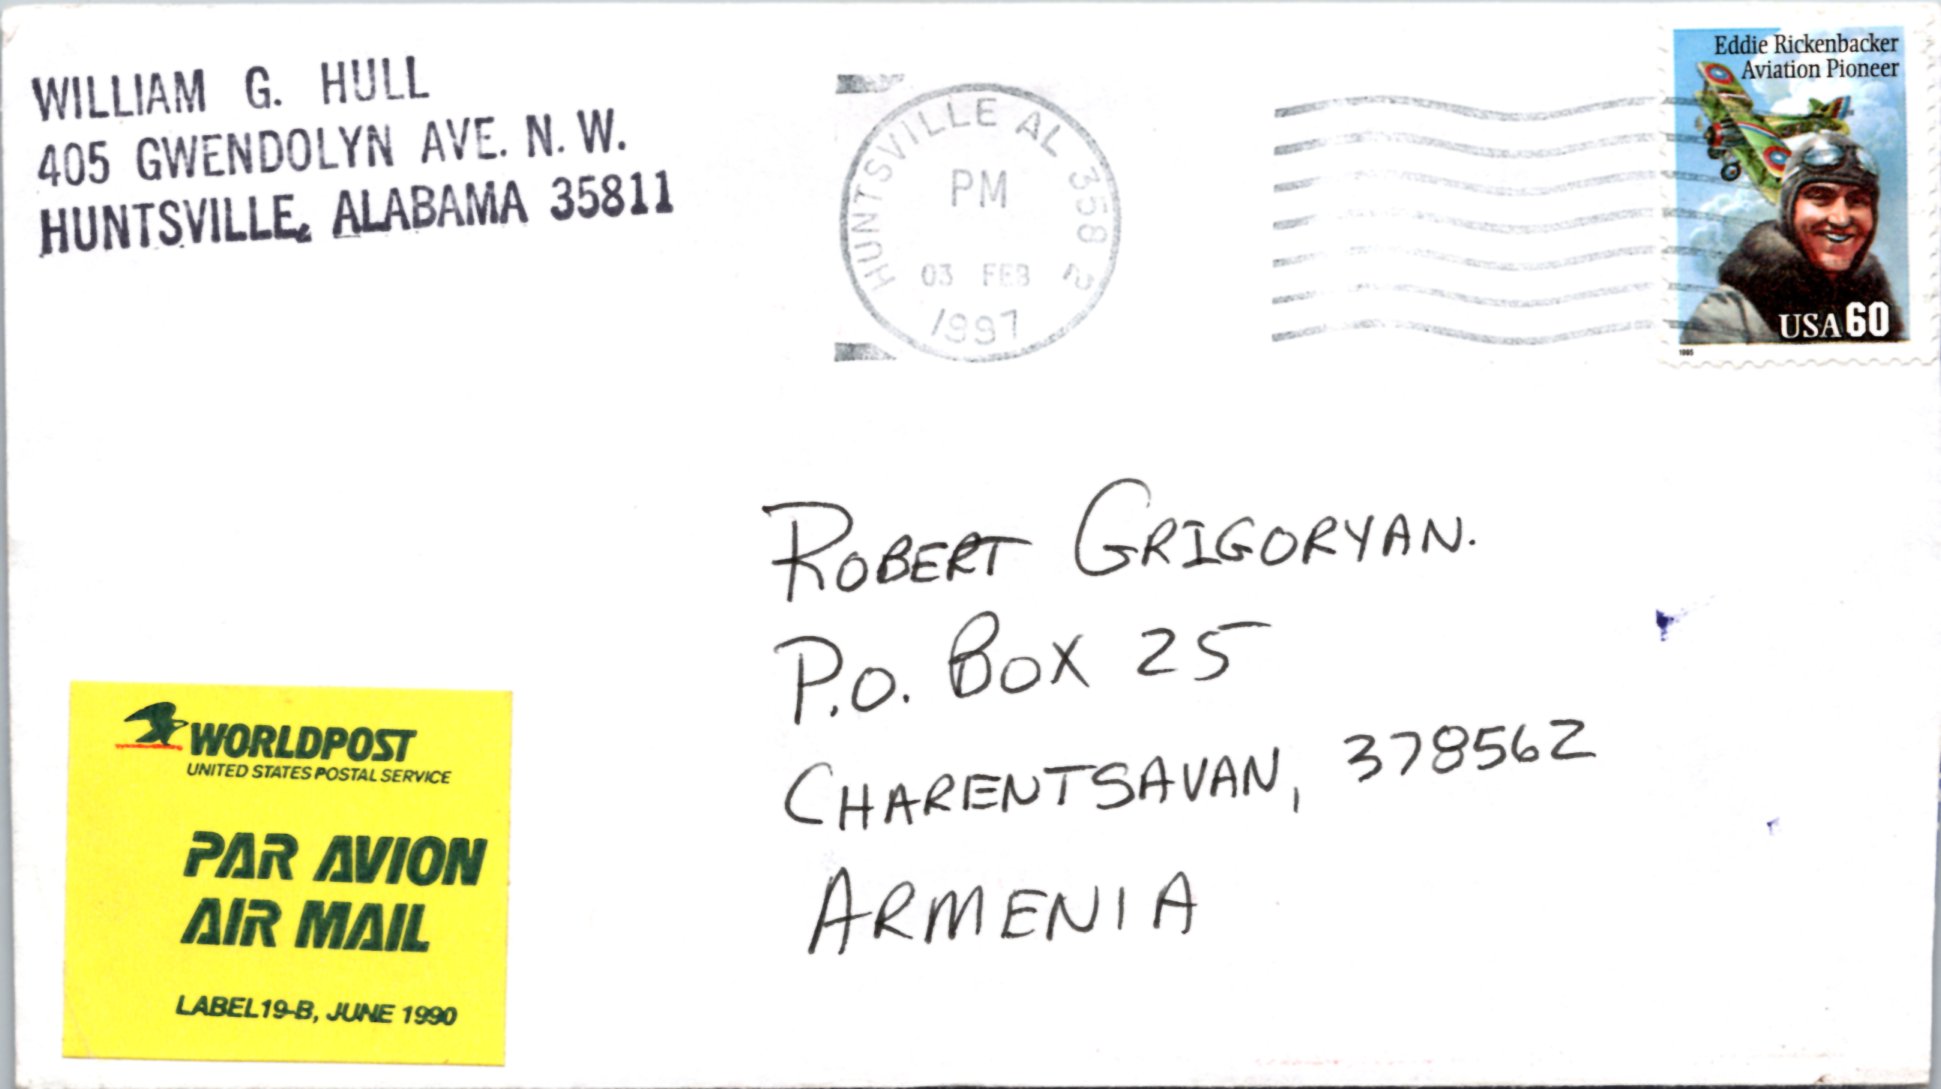 WILLIAM G. HULL
405 GWENDOLYN AVE. N.W.
HUNTSVILLE, ALABAMA 35811
HUNTSVILLE AL 358 2
PM
03 FEB
1997
Eddie Rickenbacker
Aviation Pioneer
USA 60
1995
ROBERT GRIGORYAN.
P.O. BOX 25
CHARENTSAVAN, 378562
ARMENIA
WORLDPOST
UNITED STATES POSTAL SERVICE
PAR AVION
AIR MAIL
LABEL 19-B, JUNE 1990